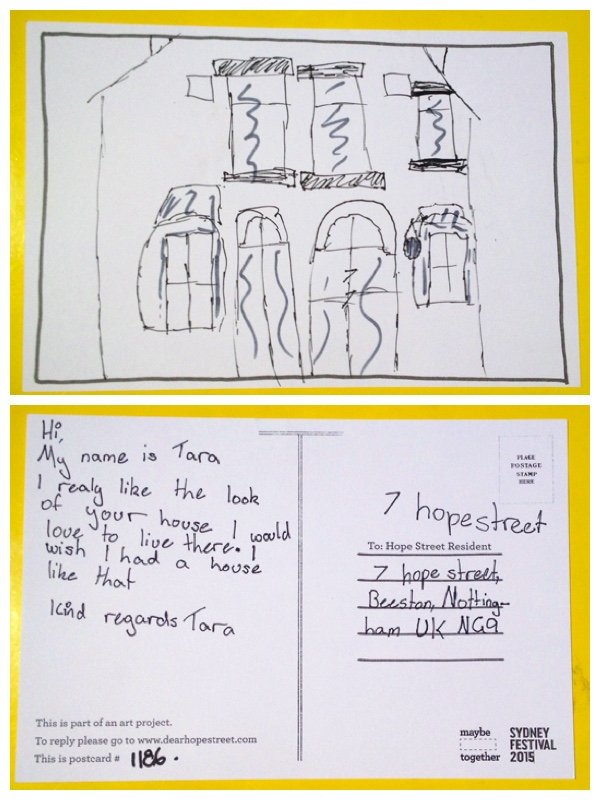 7
Hi,
My name is Tara
I realy like the look
of your house I would
love to live there. I
wish I had a house
like that
kind regards Tara
This is part of an art project.
To reply please go to www.dearhopestreet.com
This is postcard # 1186.
PLACE
POSTAGE
STAMP
HERE
7 hopestreet
To: Hope Street Resident
7 hope street,
Beeston, Notting-
ham UK NG9
maybe
together
SYDNEY
FESTIVAL
2015